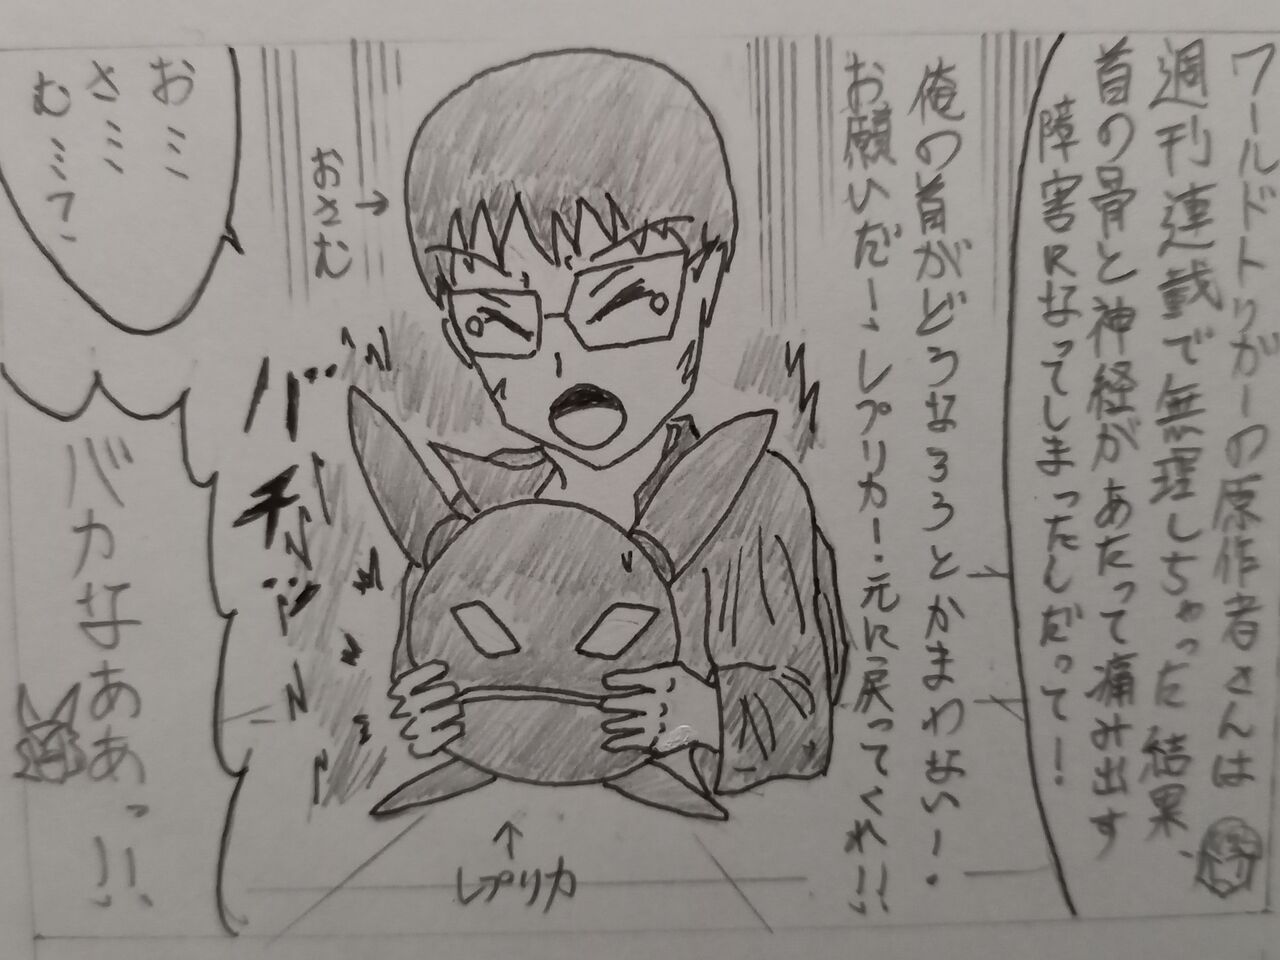 ワールドトリガーの原作者さんは
週刊連載で無理しちゃった結果、
首の骨と神経があたって痛み出す
障害Rなってしまったんだって!
俺の首がどうなろうとかまわない!
お願いだー、レプリカー・元に戻ってくれ!!
おさむ→
バチバチ
↑
レプリカ
お…
さ…
む…?
バカなああっ!!